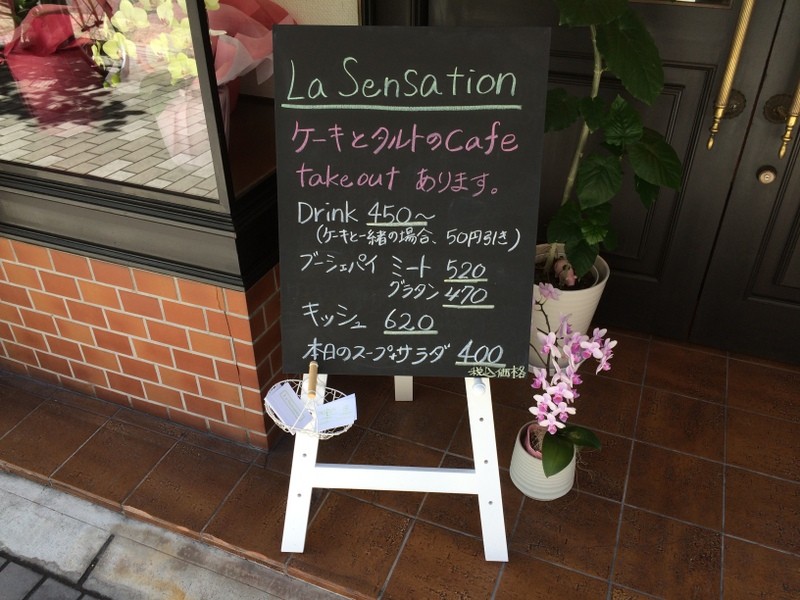 La Sensation
ケーキとタルトのcafe
takeout あります。
Drink 450～
(ケーキと一緒の場合、50円引き)
ブーシェパイ ミート 520
グラタン 470
キッシュ 620
本日のスープ+サラダ 400
税込価格